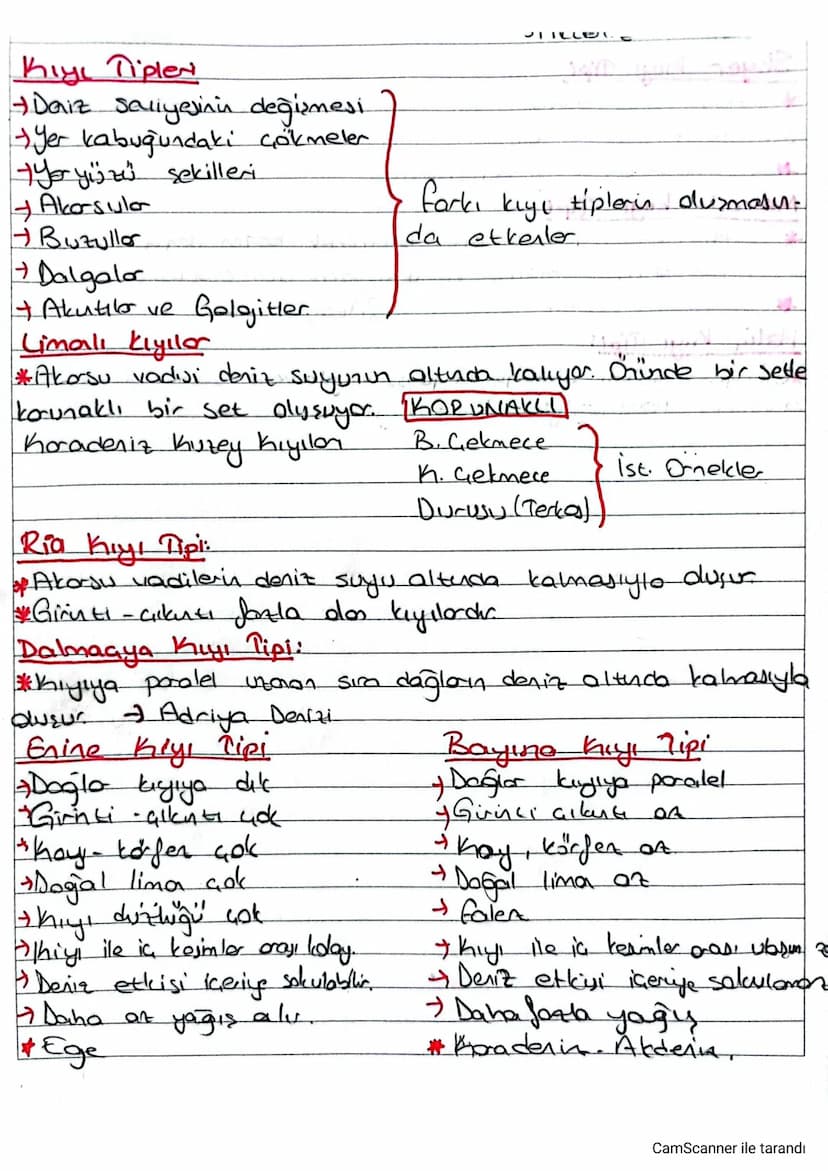 Kıyı Tipleri
→ Deniz seviyesinin değişmesi
→ Yer kabuğundaki çökmeler
→ Yer yüzü şekilleri
→ Akarsular
→ Buzullar
→ Dalgalar
→ Akıntılar ve Gelgitler
farkı kıyı tiplerin oluşmasın-
da etkenler
Limanlı kıyılar
* Akarsu vadisi deniz suyunun altında kalıyor. Önünde bir setle
korunaklı bir set oluşuyor. KORUNAKLI
Karadeniz Kuzey Kıyıları
B. Çekmece
K. Çekmece
Durusu (Terkos)
İst. Örnekler
Ria Kıyı Tipi:
* Akarsu vadilerin deniz suyu altında kalmasıyla oluşur
* Girinti - çıkıntı fazla olan kıyılardır
Dalmaçya Kıyı Tipi:
* Kıyıya paralel uzanan sıra dağların deniz altında kalmasıyla
oluşur → Adriya Denizi
Enine Kıyı Tipi
→ Dağlar kıyıya dik
→ Girinti - çıkıntı çok
→ Koy - körfez çok
→ Doğal lima çok
→ Kıyı düzlüğü çok
→ Kıyı ile iç kesimler arası kolay.
→ Deniz etkisi içeriye sokulabilir.
→ Daha az yağış alır.
* Ege
Boyuna Kıyı Tipi
→ Dağlar kıyıya paralel
→ Girinti çıkıntı az
→ Koy, körfez az
→ Doğal lima az
→ falez
→ Kıyı ile iç kesimler arası ulaşım
→ Deniz etkiyi içeriye sokulamaz
→ Daha fazla yağış
* Karadeniz - Akdeniz.
CamScanner ile tarandı